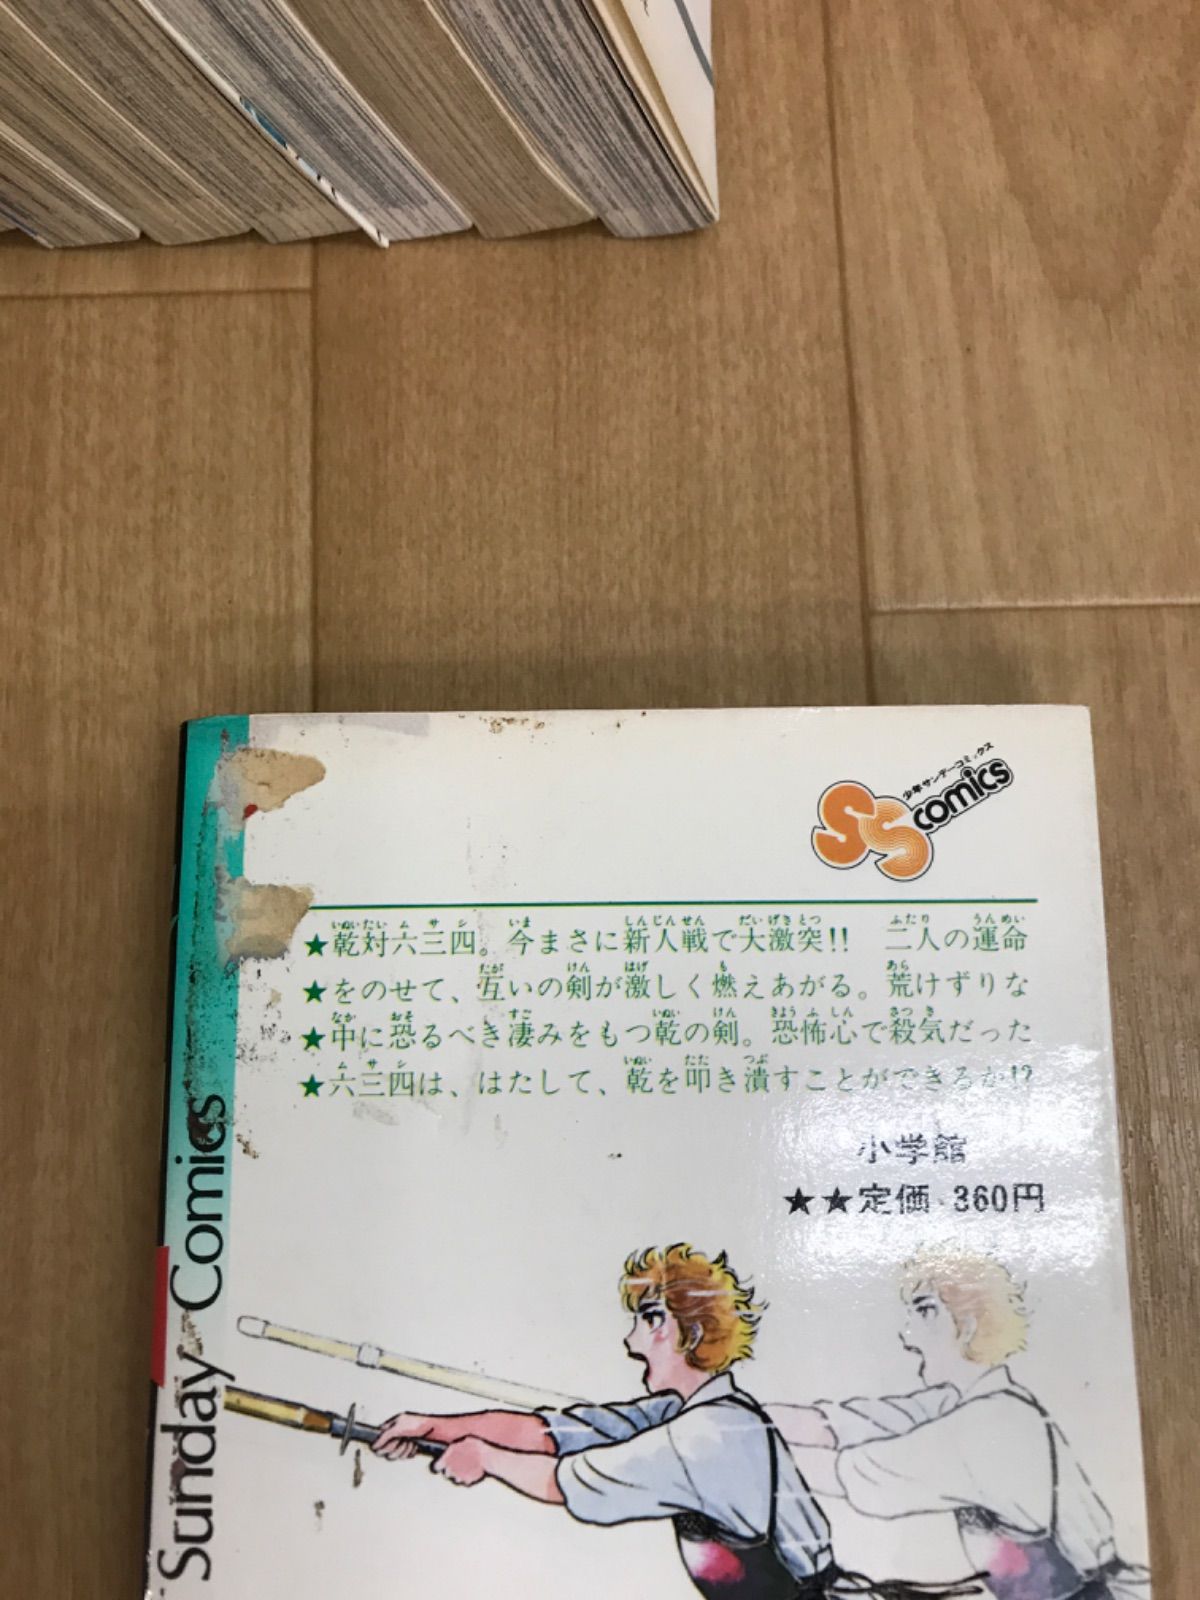 少年サンデーコミックス
SS comics
★乾対六三四。今まさに新人戦で大激突!! 二人の運命
★をのせて、互いの剣が激しく燃えあがる。荒けずりな
★中に恐るべき凄みをもつ乾の剣。恐怖心で殺気だった
★六三四は、はたして、乾を叩き潰すことができるか!?
小学館
★★定価 360円
Sunday Comics